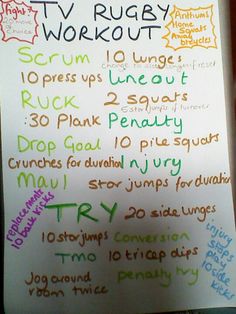 TV RUGBY
WORKOUT
Fight?
choice
Anthems
Home
Squats
Away
bicycles
Scrum 10 lunges
change to if reset
10 press ups lineout
Ruck 2 squats
5 star jumps if turnover
:30 Plank Penalty
Drop Goal 10 pile squats
Crunches for duration Injury
Maul star jumps for duration
replacement
10 back kicks
TRY 20 side lunges
10 star jumps Conversion
TMO 10 tricep dips
Jog around
room twice
penalty try
injury
stops
play
10 side
kicks